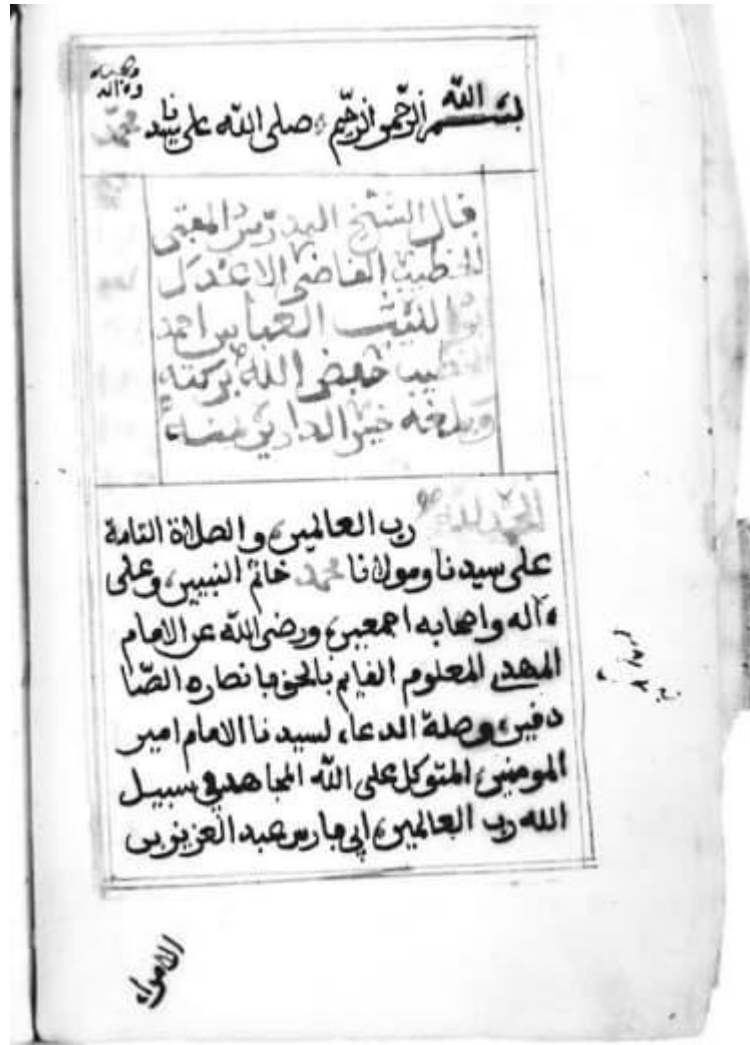 بسم الله الرحمن الرحيم صلى الله على سيدنا محمد
وصحبه
وءاله
فال الشيخ المدرس المفتى
الخطيب الفاضى الاعدل
العباس احمد
الخطيب الله بركته
وبلغه خير الدارين بمنه
الحمد لله رب العالمين، والصلاة التامة
على سيدنا ومولانا محمد خاتم النبيين، وعلى
ءاله واصحابه اجمعين، ورضى الله عن الامام
المهدي المعلوم الفايم بالحق بانصاره الصا
دفين، وصلة الدعاء لسيدنا الامام امير
المومنين، المتوكل على الله المجاهد في سبيل
الله رب العالمين، ابي فارس عبد العزيز بن
الامراء